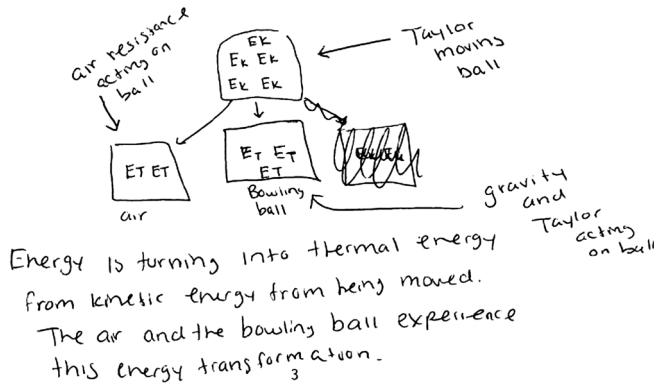 air resistance
acting on
ball
EK
EK EK
EK EK
Taylor
moving
ball
ET ET
air
ET ET
ET
Bowling
ball
gravity
and
Taylor
acting
on ball
Energy is turning into thermal energy
from kinetic energy from being moved.
The air and the bowling ball experience
this energy transformation.
3